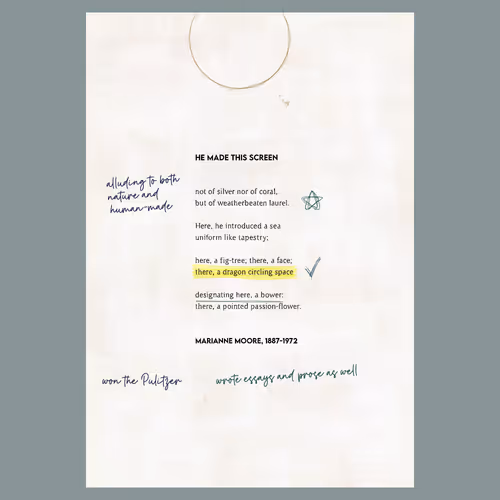 HE MADE THIS SCREEN
not of silver nor of coral,
but of weatherbeaten laurel.
alluding to both
nature and
human-made
Here, he introduced a sea
uniform like tapestry;
here, a fig-tree; there, a face;
there, a dragon circling space
designating here, a bower;
there, a pointed passion-flower.
MARIANNE MOORE, 1887-1972
won the Pulitzer
wrote essays and prose as well